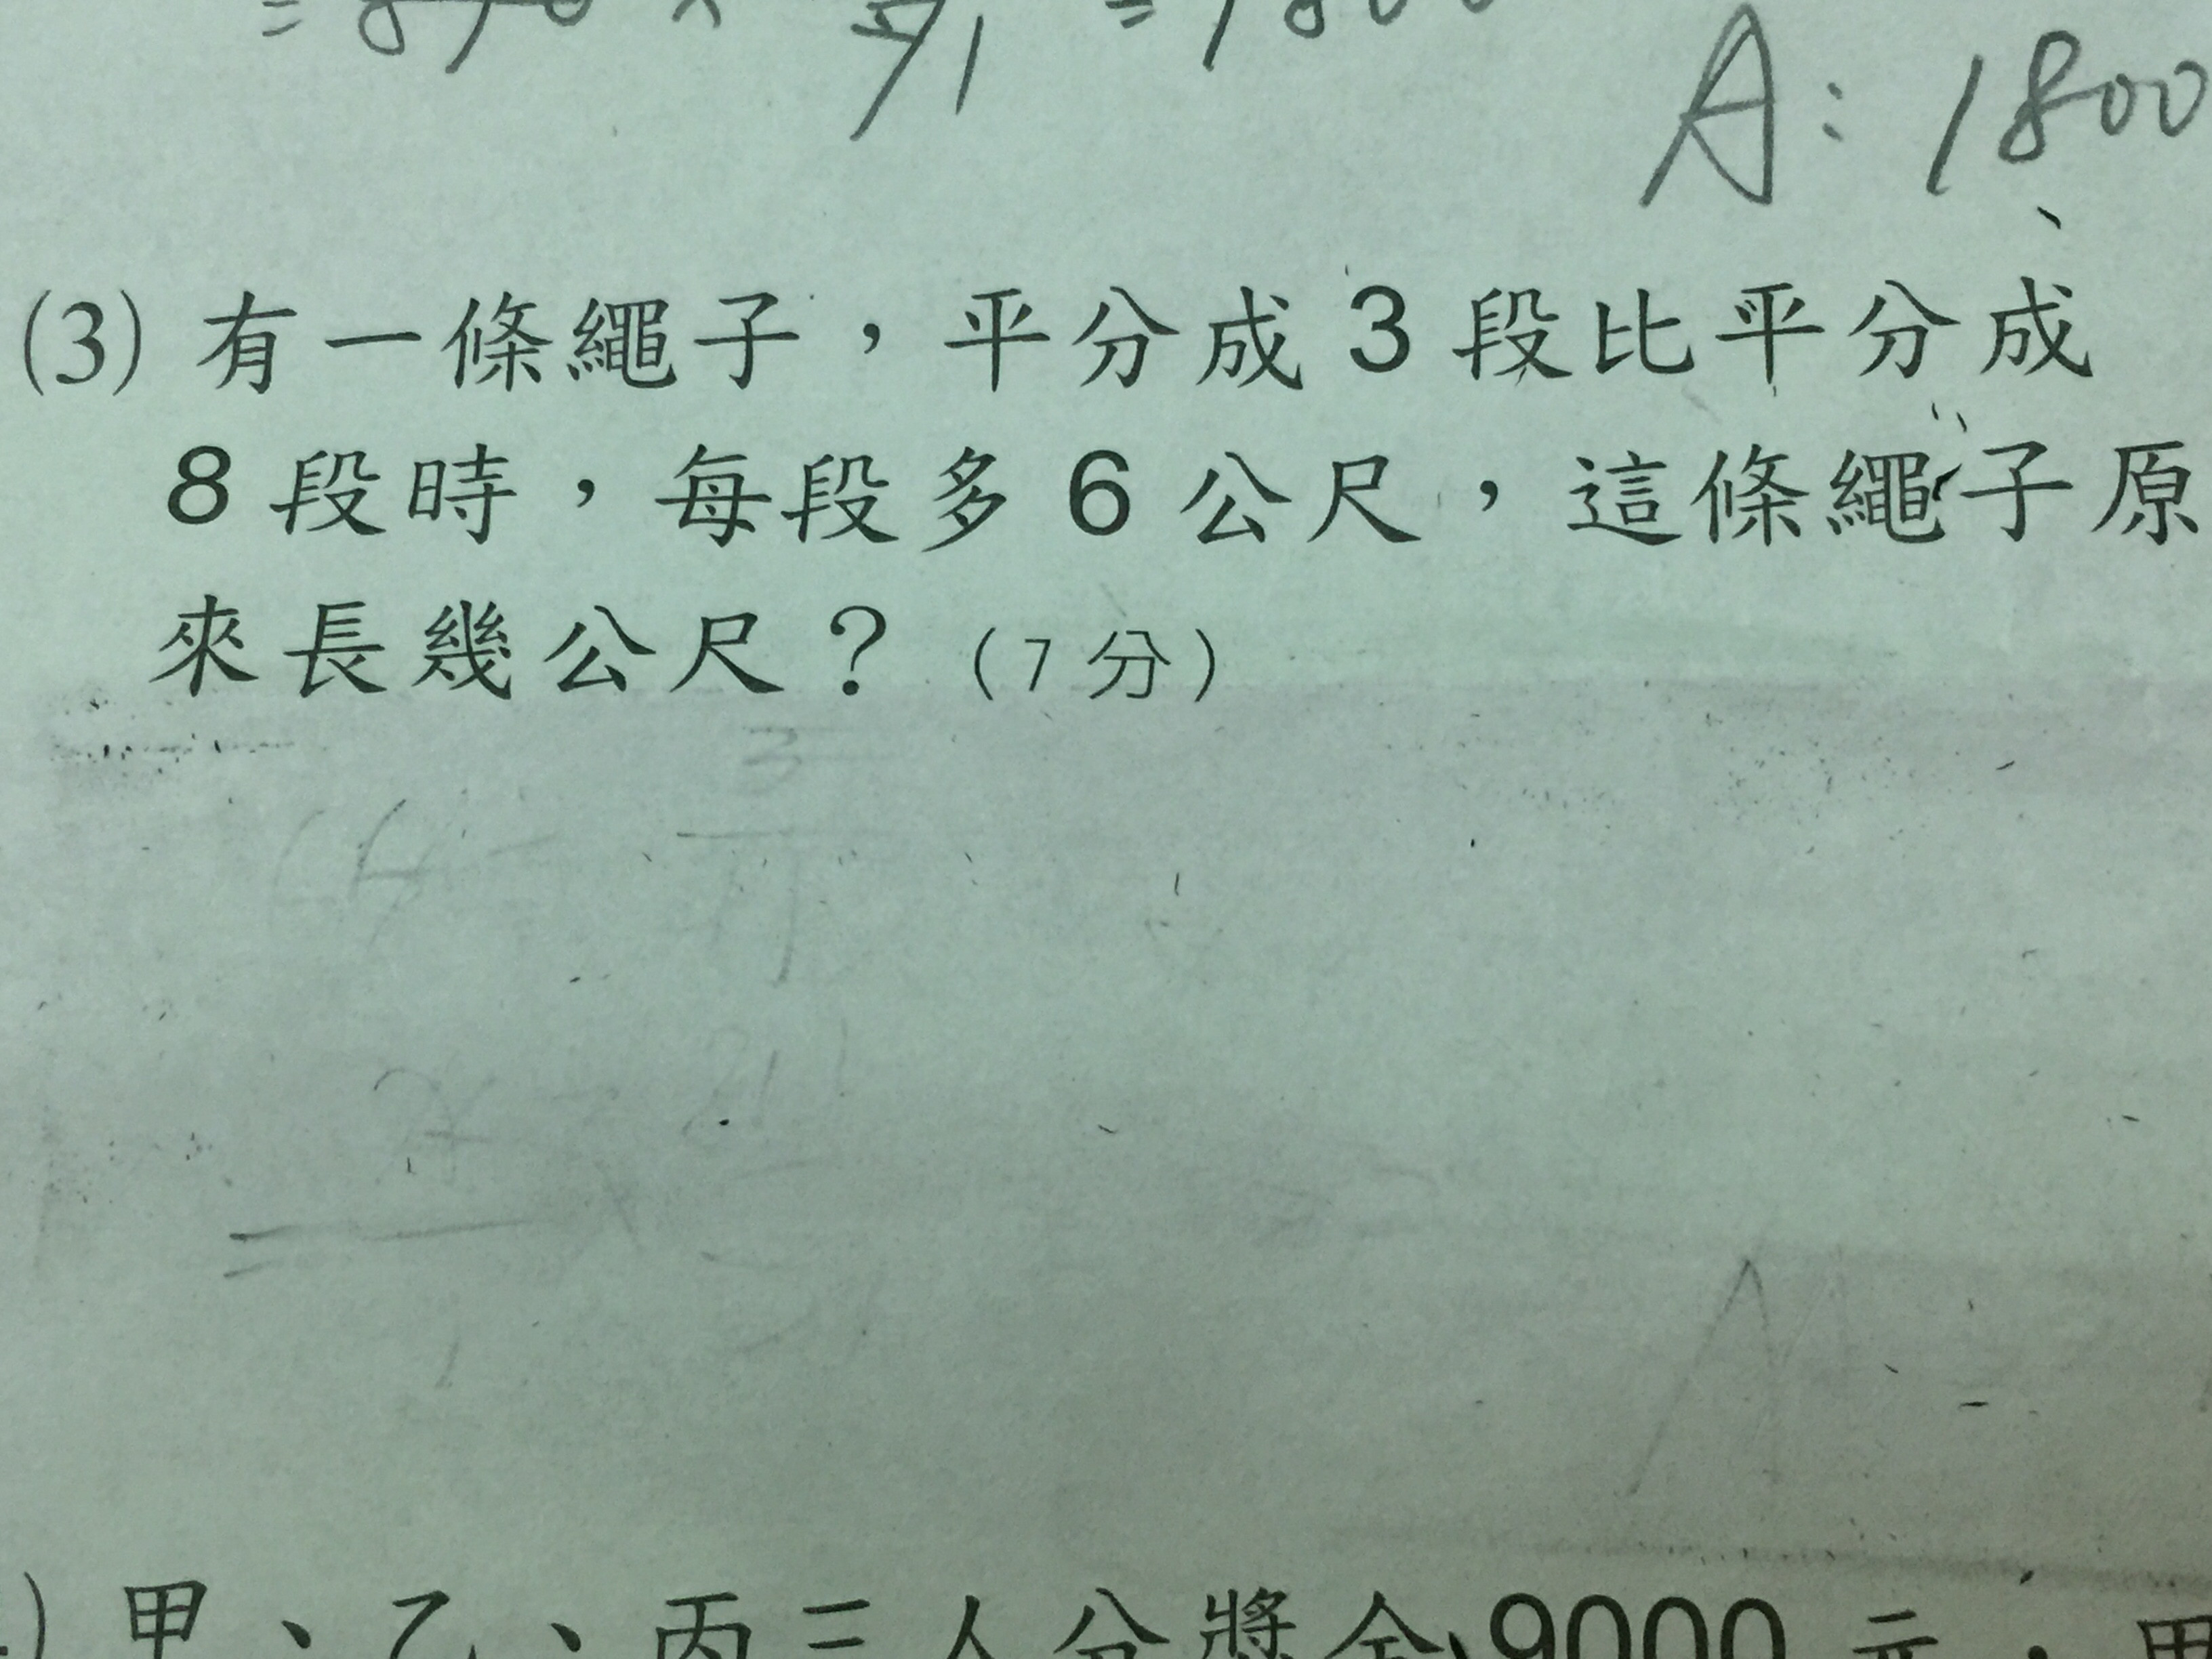 A: 1800
(3) 有一條繩子，平分成 3 段比平分成
8 段時，每段多 6 公尺，這條繩子原
來長幾公尺？（7 分）
甲、乙、丙三人分獎金 9000 元，甲